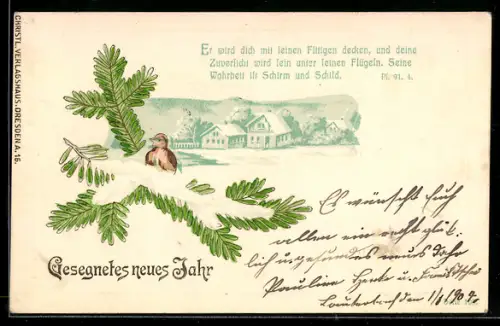 CHRISTL. VERLAGSHAUS, DRESDEN A. 16.
Er wird dich mit seinen Fittigen decken, und deine
Zuversicht wird sein unter seinen Flügeln. Seine
Wahrheit ist Schirm und Schild. Ps. 91. 4.
Gesegnetes neues Jahr
Es wünscht Euch
allen ein recht glück-
lich u. gesundes neues Jahr
Pauline u.
den 1/1 1904.